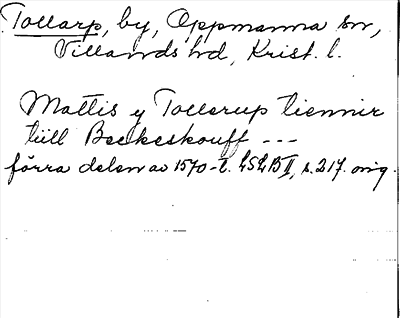 Tollarp, by, Oppmanna sn,
Villands hd, Krist. l.
Mattis y Tollerup tiennir
till Beckeskouff ---
förra delen av 1570-t. LSLB II, s. 217. orig.